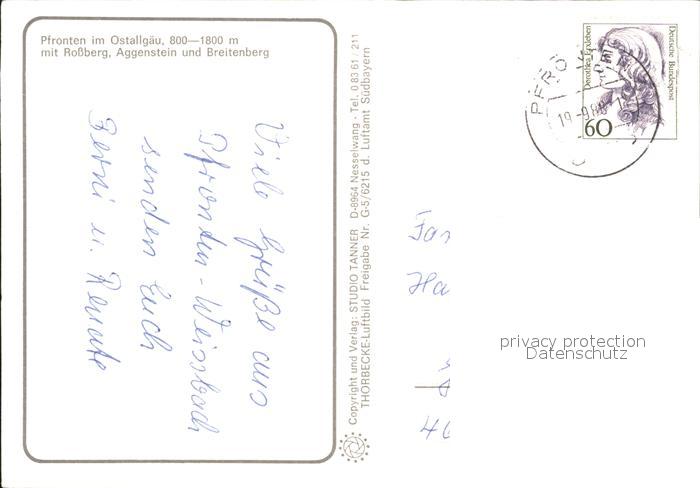 Pfronten im Ostallgäu, 800—1800 m
mit Roßberg, Aggenstein und Breitenberg
Viele Grüße aus
Pfronten-Weissbach
senden Euch
Berni u. Renate
Copyright und Verlag: STUDIO TANNER D-8964 Nesselwang · Tel. 0 83 61 / 211
THORBECKE-Luftbild Freigabe Nr. G-5/6215 d. Luftamt Südbayern
Dorothea Erxleben
Deutsche Bundespost
60
Fam
Ha
privacy protection
Datenschutz